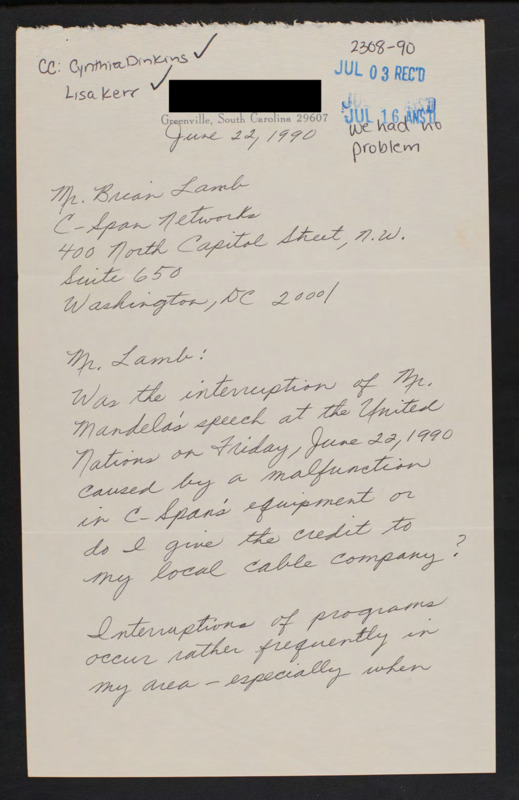 CC: Cynthia Dinkins ✓
Lisa Kerr ✓
2308-90
JUL 03 REC'D
JUL 16 ANS'D
we had no
problem
Greenville, South Carolina 29607
June 22, 1990
Mr. Brian Lamb
C-Span Networks
400 North Capitol Street, N.W.
Suite 650
Washington, DC 20001
Mr. Lamb:
Was the interruption of Mr.
Mandela's speech at the United
Nations on Friday, June 22, 1990
caused by a malfunction
in C-Span's equipment or
do I give the credit to
my local cable company?
Interruptions of programs
occur rather frequently in
my area - especially when